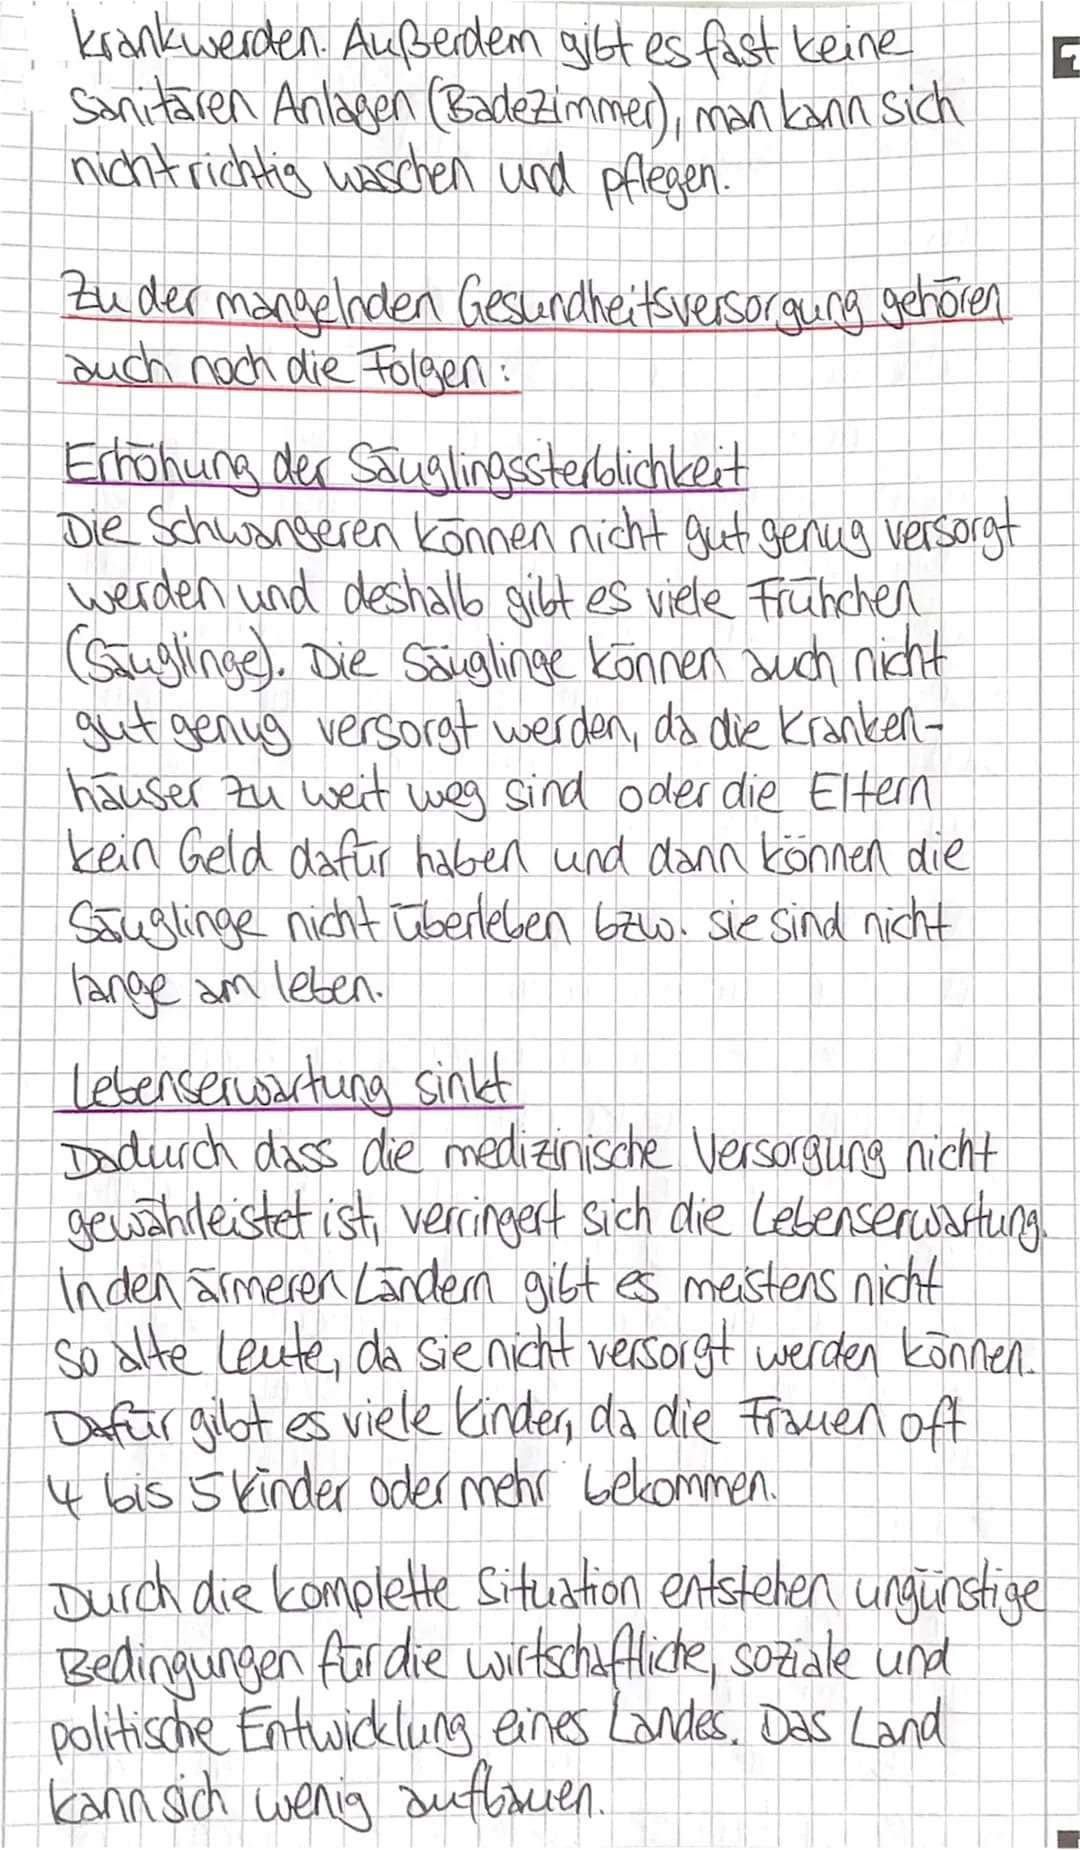 krankwerden. Außerdem gibt es fast keine
Sanitären Anlagen (Badezimmer), man kann sich
nicht richtig waschen und pflegen.
Zu der mangelnden Gesundheitsversorgung gehören
auch noch die Folgen:
Erhöhung der Säuglingssterblichkeit
Die Schwangeren können nicht gut genug versorgt
werden und deshalb gibt es viele Frühchen
(Säuglinge). Die Säuglinge können auch nicht
gut genug versorgt werden, da die Kranken-
häuser zu weit weg sind oder die Eltern
kein Geld dafür haben und dann können die
Säuglinge nicht überleben bzw. sie sind nicht
lange am leben.
Lebenserwartung sinkt
Dadurch dass die medizinische Versorgung nicht
gewährleistet ist, verringert sich die Lebenserwartung.
In den ärmeren Ländern gibt es meistens nicht
so alte Leute, da sie nicht versorgt werden können.
Dafür gibt es viele Kinder, da die Frauen oft
4 bis 5 Kinder oder mehr bekommen.
Durch die komplette Situation entstehen ungünstige
Bedingungen für die wirtschaftliche, soziale und
politische Entwicklung eines Landes. Das Land
kann sich wenig aufbauen.